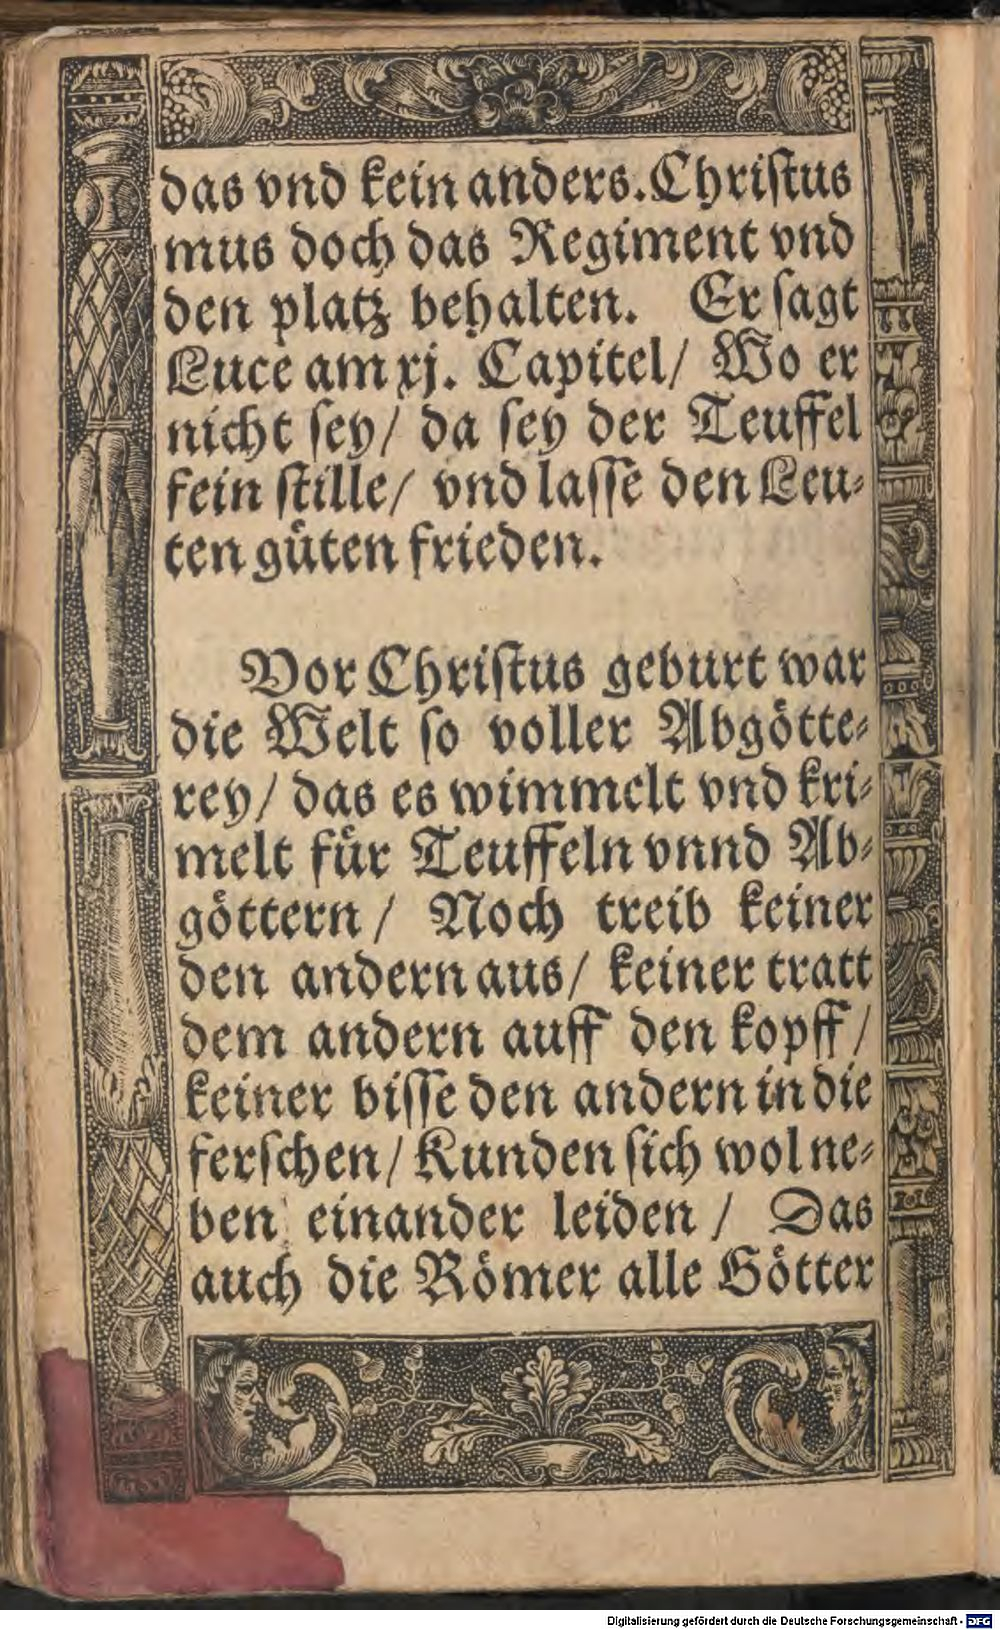 das vnd kein anders. Chriſtus
mus doch das Regiment vnd
den platz behalten. Er ſagt
Luce am xj. Capitel/ Wo er
nicht ſey/ da ſey der Teuffel
fein ſtille/ vnd laſſe den Leu⸗
ten guͤten frieden.
Vor Chriſtus geburt war
die Welt ſo voller Abgoͤtte⸗
rey/ das es wimmelt vnd kri⸗
melt fuͤr Teuffeln vnnd Ab⸗
goͤttern/ Noch treib keiner
den andern aus/ keiner tratt
dem andern auff den kopff/
keiner biſſe den andern in die
ferſchen/ Kunden ſich wol ne⸗
ben einander leiden/ Das
auch die Roͤmer alle Goͤtter
Digitalisierung gefördert durch die Deutsche Forschungsgemeinschaft - DFG